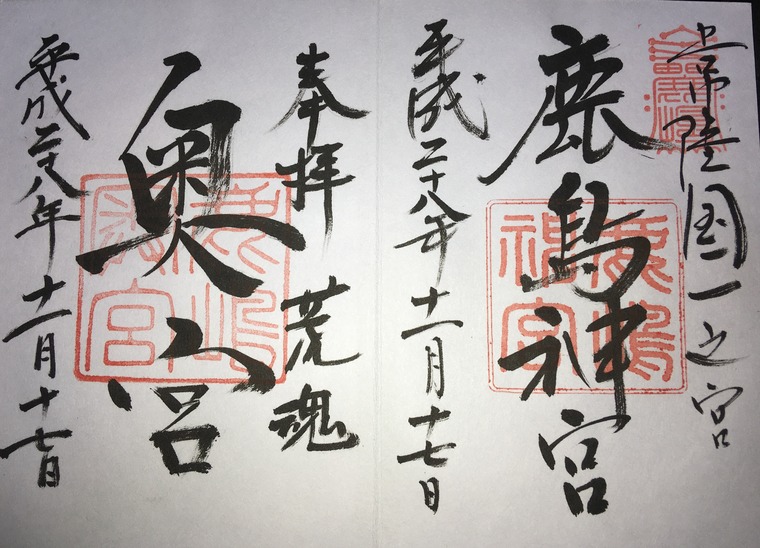 常陸国一之宮
鹿島神宮
平成二十八年十一月十七日
奉拝 荒魂
奥宮
平成二十八年十一月十七日
鹿嶋神宮